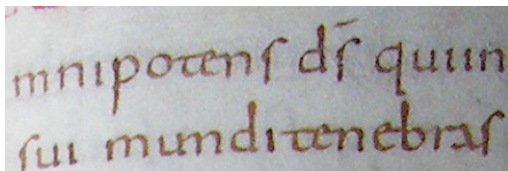 mnipotens ds̄ quiin
sui munditenebras